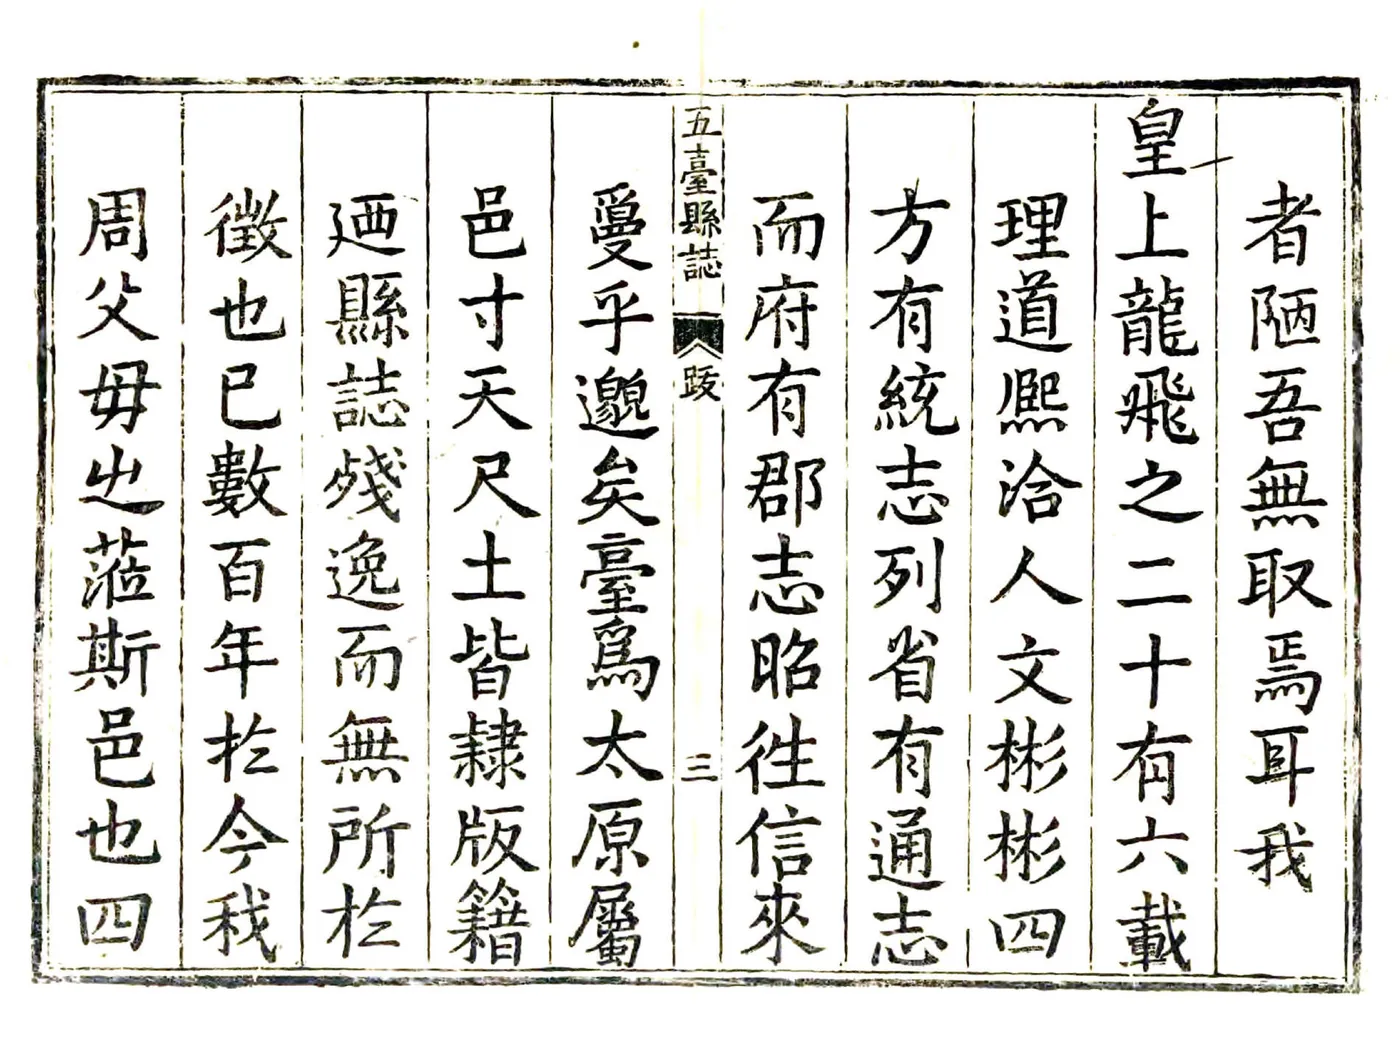 者陋吾無取焉耳我
皇上龍飛之二十有六載
理道熙洽人文彬彬四
方有統志列省有通志
而府有郡志昭徃信來
五臺縣誌
跋
三
夐乎邈矣臺爲太原屬
邑寸天尺土皆隸版籍
廼縣誌殘逸而無所於
徵也已數百年於今我
周父母之蒞斯邑也四